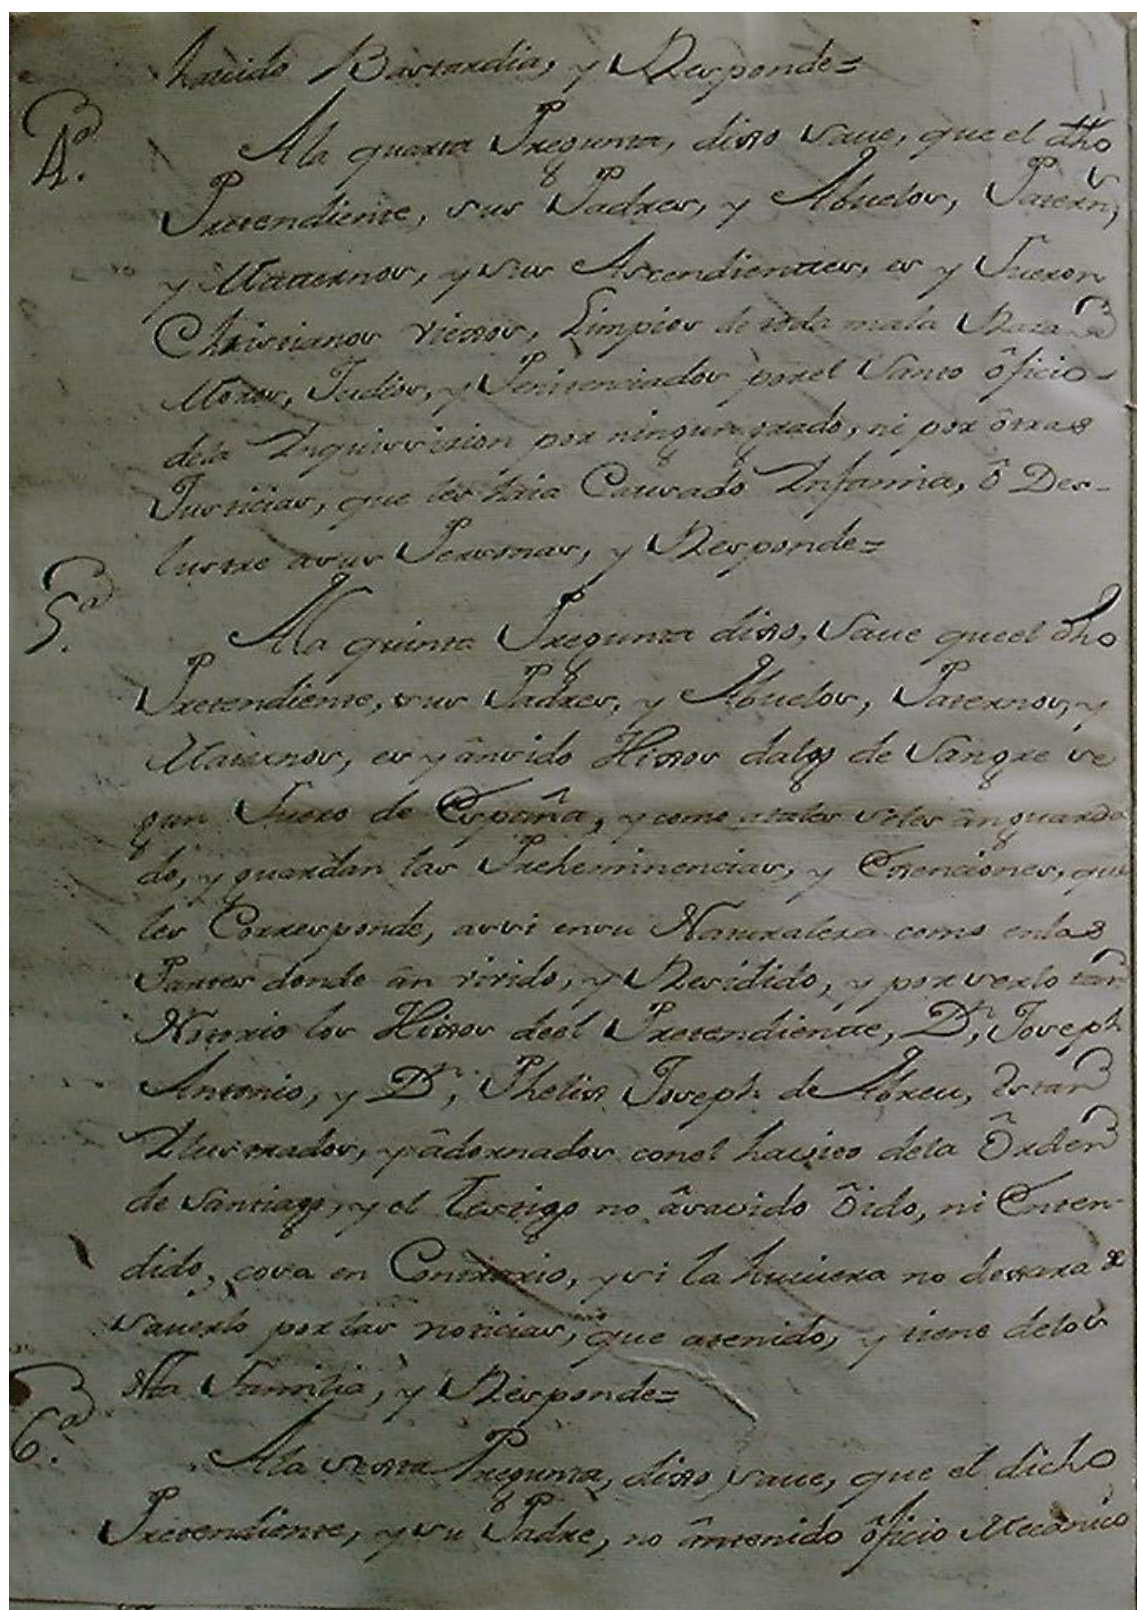 havido Bastardia, y Responde=
4.ª
A la quarta Pregunta, dixo Save, que el dho
Pretendiente, sus Padres, y Abuelos, Patern.s
y Maternos, y sus Ascendientes, es y fueron
Christianos viexos, Limpios de toda mala Raza de
Moros, Judios, y Penitenciados por el Santo ôficio
dela Inquissizion por ningun grado, ni por ôtras
Justicias, que les haia Causado Infamia, ô Des-
lustre asus Personas, y Responde=
5.ª
A la quinta Pregunta dixo, Save que el dho
Pretendiente, sus Padres, y Abuelos, Paternos, y
Maternos, es y ân sido Hixos dalgo de Sangre se
gun fuero de España, y como atales seles ân guarda
do, y guardan las Preheminencias, y Exenciones, que
les Corresponde, assi ensu Naturaleza como enlas
Partes donde ân vivido, y Residido, y por serlo tan
Notorio los Hixos deel Pretendiente, D.n Joseph
Antonio, y D.n Phelix Joseph de Abreu, Estan
Ilustrados, y âdornados conel havito dela Ôrden
de Santiago, y el testigo no âsavido ôido, ni Enten-
dido, cosa en Contrario, y si la huviera no dexara de
saverlo por las noticias, que atenido, y tiene detoda
sta Familia, y Responde=
6.ª
A la sexta Pregunta, dixo save, que el dicho
Pretendiente, y su Padre, no ântenido ôficio Mecanico